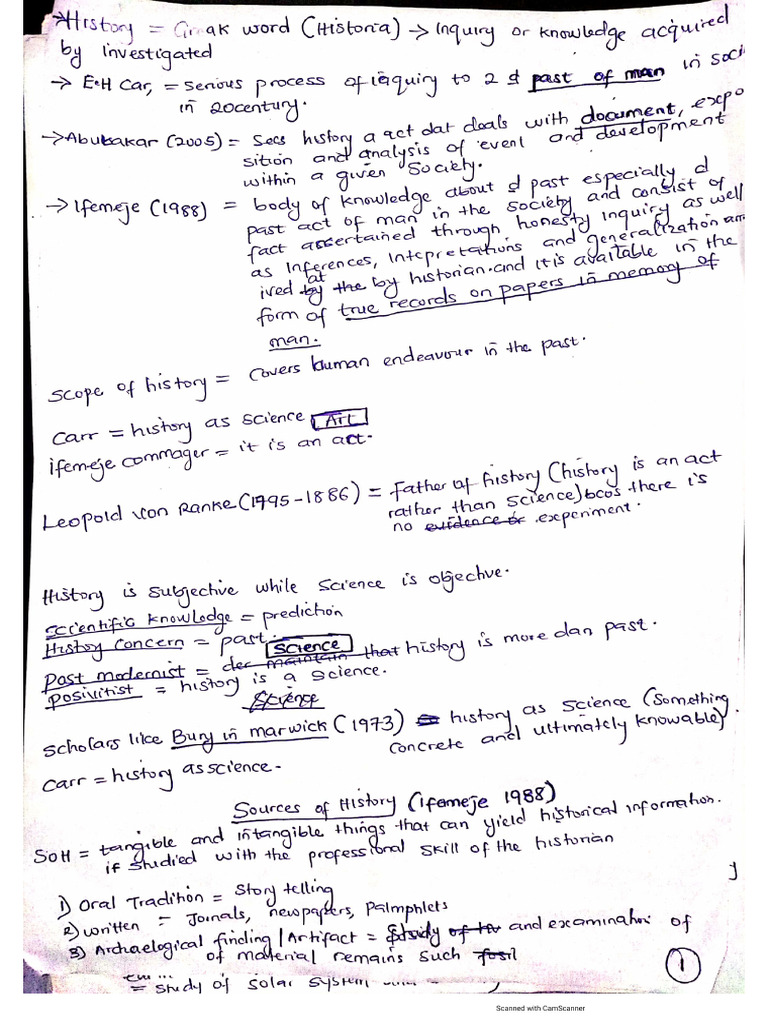 →History = Greek word (Historia) → Inquiry or knowledge acquired
by investigated
→ E.H Car, = serious process of inquiry to 2 d past of man in soci
in 20century.
→Abubakar (2005) = Sees history a act dat deals with document, expo
sition and analysis of event and development
within a given Society.
→ Ifemeje (1988) = body of knowledge about d past especially d
past act of man in the society and consist of
fact ascertained through honesty inquiry as well
as Inferences, Intepretations and generalization arr
ived at by the by historian.and it is available in the
form of true records on papers in memory of
man.
Scope of history = Covers human endeavour in the past.
Carr = history as science Art
ifemeje commager = it is an act.
Leopold von Ranke(1795-1886) = Father of history (history is an act
rather than science) bcos there is
no evidence or .experiment.
History is subjective while science is objective.
Scientific knowledge = prediction
History concern = past.
Science
Post modernist = dec maintain that history is more dan past.
Posivitist = history is a science.
Science
Scholars like Bury in marwick (1973) history as science (Something
concrete and ultimately knowable).
Carr = history as science.
Sources of History (ifemeje 1988)
SOH = tangible and intangible things that can yield historical information.
if studied with the professional skill of the historian
1) Oral Tradition = Story telling
2) written = Joinals, newpapers, Palmphlets
3) Archaelogical finding/Artifact = Study of and examination of
of material remains such fosil
= study of solar system
1
Scanned with CamScanner